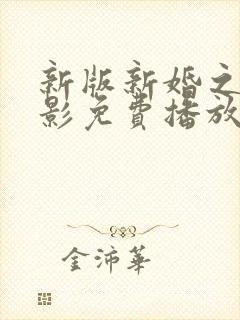 新版新婚之
影免費播放
金沛華